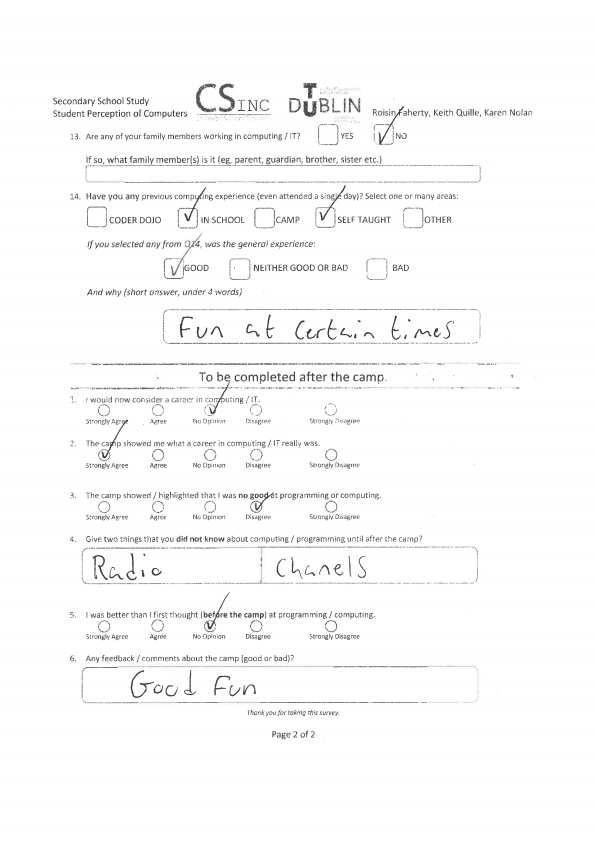 Secondary School Study
Student Perception of Computers
CSINC
TU DUBLIN
Roisin Faherty, Keith Quille, Karen Nolan
13. Are any of your family members working in computing / IT? YES NO
If so, what family member(s) is it (eg, parent, guardian, brother, sister etc.)
14. Have you any previous computing experience (even attended a single day)? Select one or many areas:
CODER DOJO IN SCHOOL CAMP SELF TAUGHT OTHER
If you selected any from Q14, was the general experience:
GOOD NEITHER GOOD OR BAD BAD
And why (short answer, under 4 words)
Fun at certain times
To be completed after the camp.
1. I would now consider a career in computing / IT.
Strongly Agree Agree No Opinion Disagree Strongly Disagree
2. The camp showed me what a career in computing / IT really was.
Strongly Agree Agree No Opinion Disagree Strongly Disagree
3. The camp showed / highlighted that I was no good at programming or computing.
Strongly Agree Agree No Opinion Disagree Strongly Disagree
4. Give two things that you did not know about computing / programming until after the camp?
Radio Chanels
5. I was better than I first thought (before the camp) at programming / computing.
Strongly Agree Agree No Opinion Disagree Strongly Disagree
6. Any feedback / comments about the camp (good or bad)?
Good Fun
Thank you for taking this survey.
Page 2 of 2